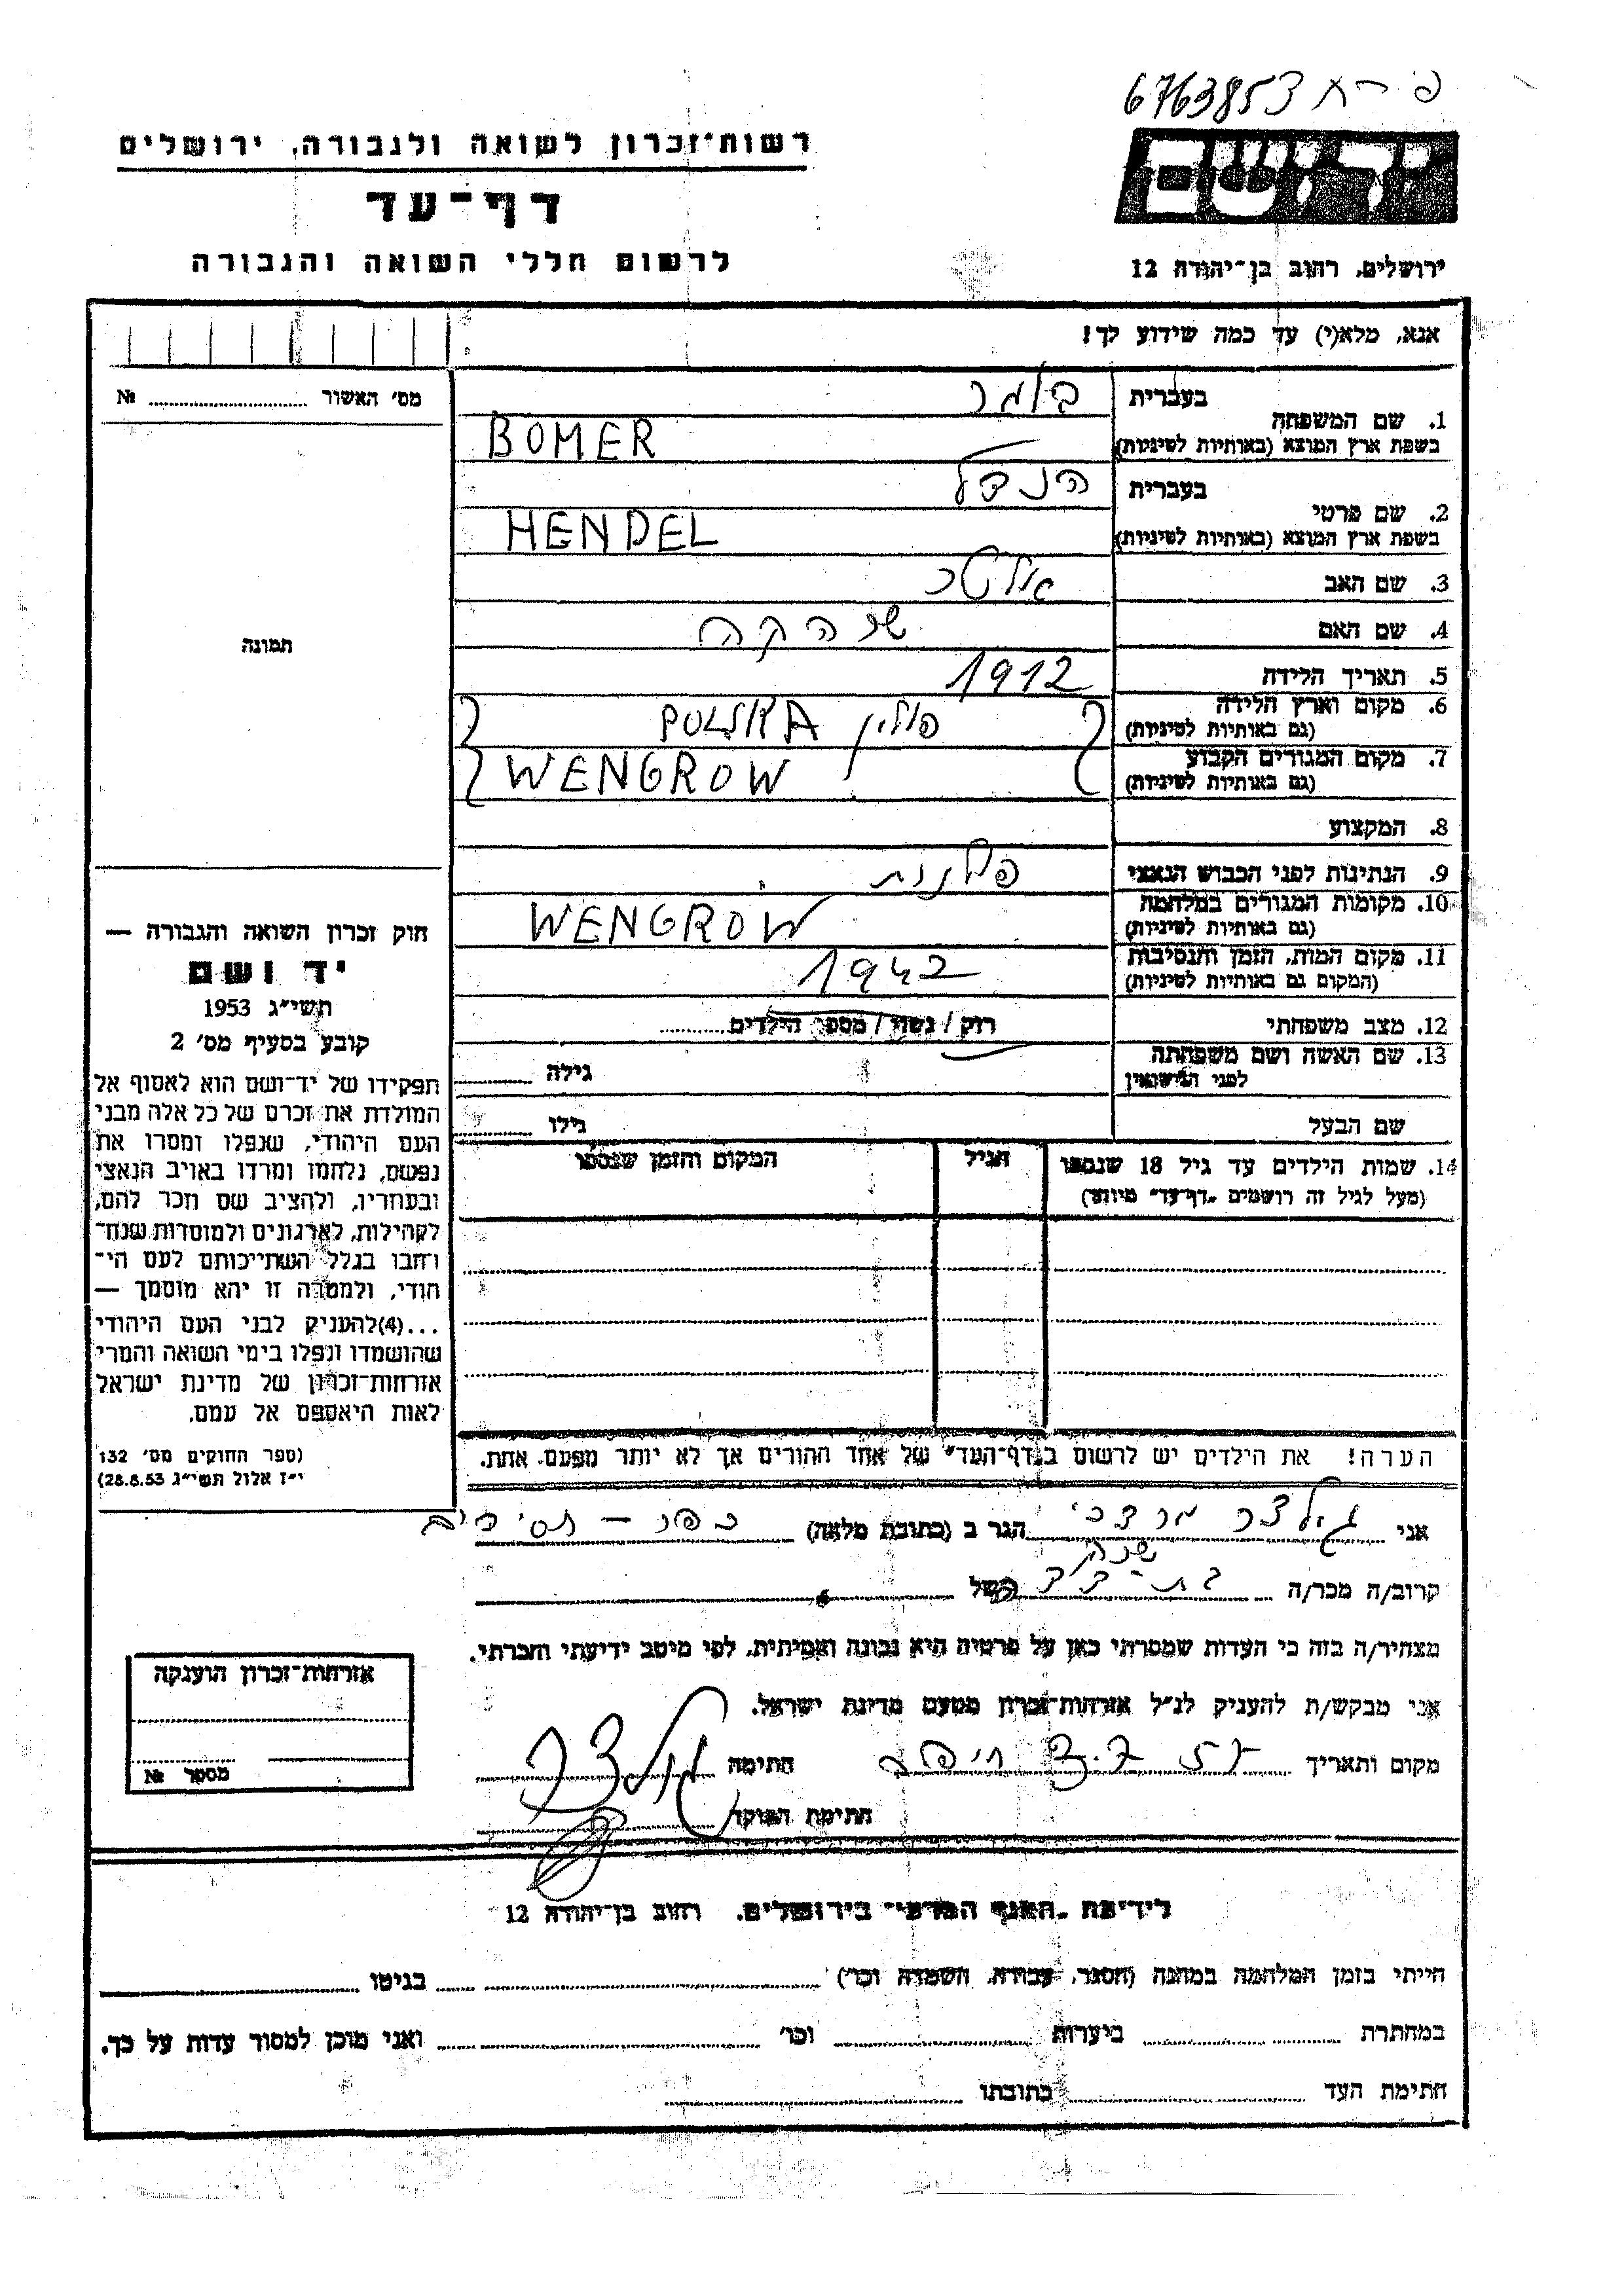 6763853 פ-ת
יד ושם
רשות־זכרון לשואה ולגבורה, ירושלים
דף־עד
לרשום חללי השואה והגבורה
ירושלים, רחוב בן־יהודה 12
אנא, מלא(י) עד כמה שידוע לך!
מס׳ האשור № 
תמונה
1. שם המשפחה
בעברית בומר
בשפת ארץ המוצא (באותיות לטיניות) BOMER
2. שם פרטי
בעברית הנדל
בשפת ארץ המוצא (באותיות לטיניות) HENDEL
3. שם האב אלטר
4. שם האם
5. תאריך הלידה 1912
6. מקום וארץ הלידה (גם באותיות לטיניות) פולין POLSKA
7. מקום המגורים הקבוע (גם באותיות לטיניות) WENGROW
8. המקצוע
9. הנתינות לפני הכבוש הנאצי פולנית
10. מקומות המגורים במלחמה (גם באותיות לטיניות) WENGROW
11. מקום המות, הזמן והנסיבות (המקום גם באותיות לטיניות) 1942
12. מצב משפחתי רווק / נשוי / מספר הילדים
13. שם האשה ושם משפחתה לפני הנישואין גילה
שם הבעל גילו
14. שמות הילדים עד גיל 18 שנספו
(מעל לגיל זה רושמים „דף־עד״ מיוחד)
הגיל
המקום והזמן שנספו
הערה! את הילדים יש לרשום ב„דף־העד״ של אחד ההורים אך לא יותר מפעם אחת.
חוק זכרון השואה והגבורה —
יד ושם
תשי״ג 1953
קובע בסעיף מס׳ 2
תפקידו של יד־ושם הוא לאסוף אל
המולדת את זכרם של כל אלה מבני
העם היהודי, שנפלו ומסרו את
נפשם, נלחמו ומרדו באויב הנאצי
ובעוזריו, ולהציב שם וזכר להם,
לקהילות, לארגונים ולמוסדות שנח־
רחבו בגלל השתייכותם לעם הי־
הודי, ולמטרה זו יהא מוסמך —
...(4)להעניק לבני העם היהודי
שהושמדו ונפלו בימי השואה והמרי
אזרחות־זכרון של מדינת ישראל
לאות היאספם אל עמם.
(ספר החוקים מס׳ 132
י״ז אלול תשי״ג 28.8.53)
אני גולצר מרדכי הגר ב (כתובת מלאה) כפר - חסידים
קרוב/ה מכר/ה בת-דד של
מצהיר/ה בזה כי העדות שמסרתי כאן על פרטיה היא נכונה ואמיתית, לפי מיטב ידיעתי והכרתי.
אני מבקש/ת להעניק לנ״ל אזרחות־זכרון מטעם מדינת ישראל.
מקום ותאריך חיפה חתימה
חתימת הפוקד
אזרחות־זכרון הוענקה
מספר №
לידיעת „האגף המדעי״ בירושלים, רחוב בן־יהודה 12
הייתי בזמן המלחמה במחנה (הסגר, עבודה, השמדה וכו׳) בגיטו
במחתרת ביערות וכו׳ ואני מוכן למסור עדות על כך.
חתימת העד כתובתו